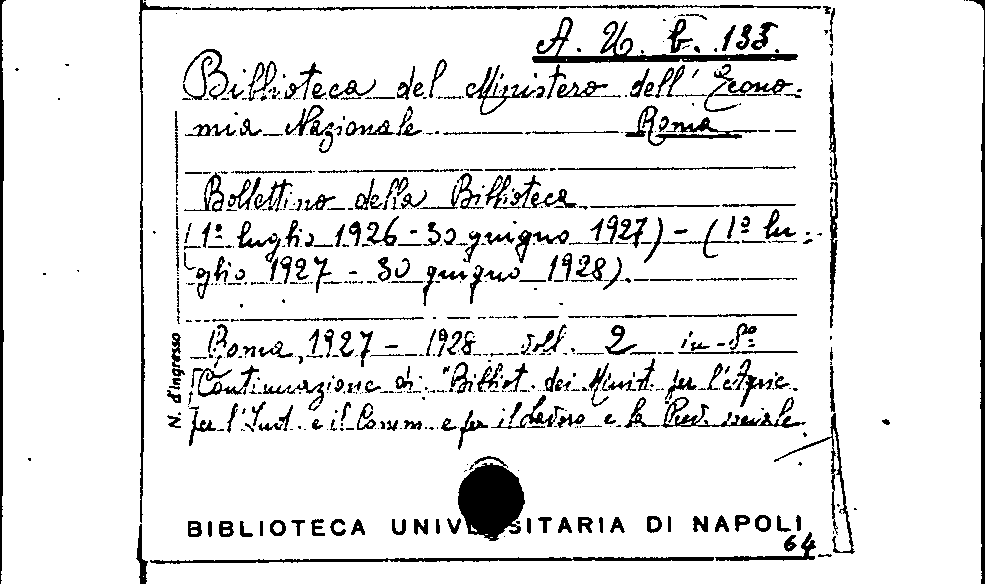 A. U. b. 133.
Biblioteca del Ministero dell' Econo-
mia Nazionale Roma
Bollettino della Biblioteca
(1º luglio 1926 - 30 giugno 1927) - (1º lu-
glio 1927 - 30 giugno 1928).
Roma, 1927 - 1928 voll. 2 in-8º
[Continuazione di: "Bibliot. dei Minist. per l'Agric.
per l'Ind. e il Comm. e per il Lavoro e la Prev. sociale
N. d'ingresso
BIBLIOTECA UNIVERSITARIA DI NAPOLI
64